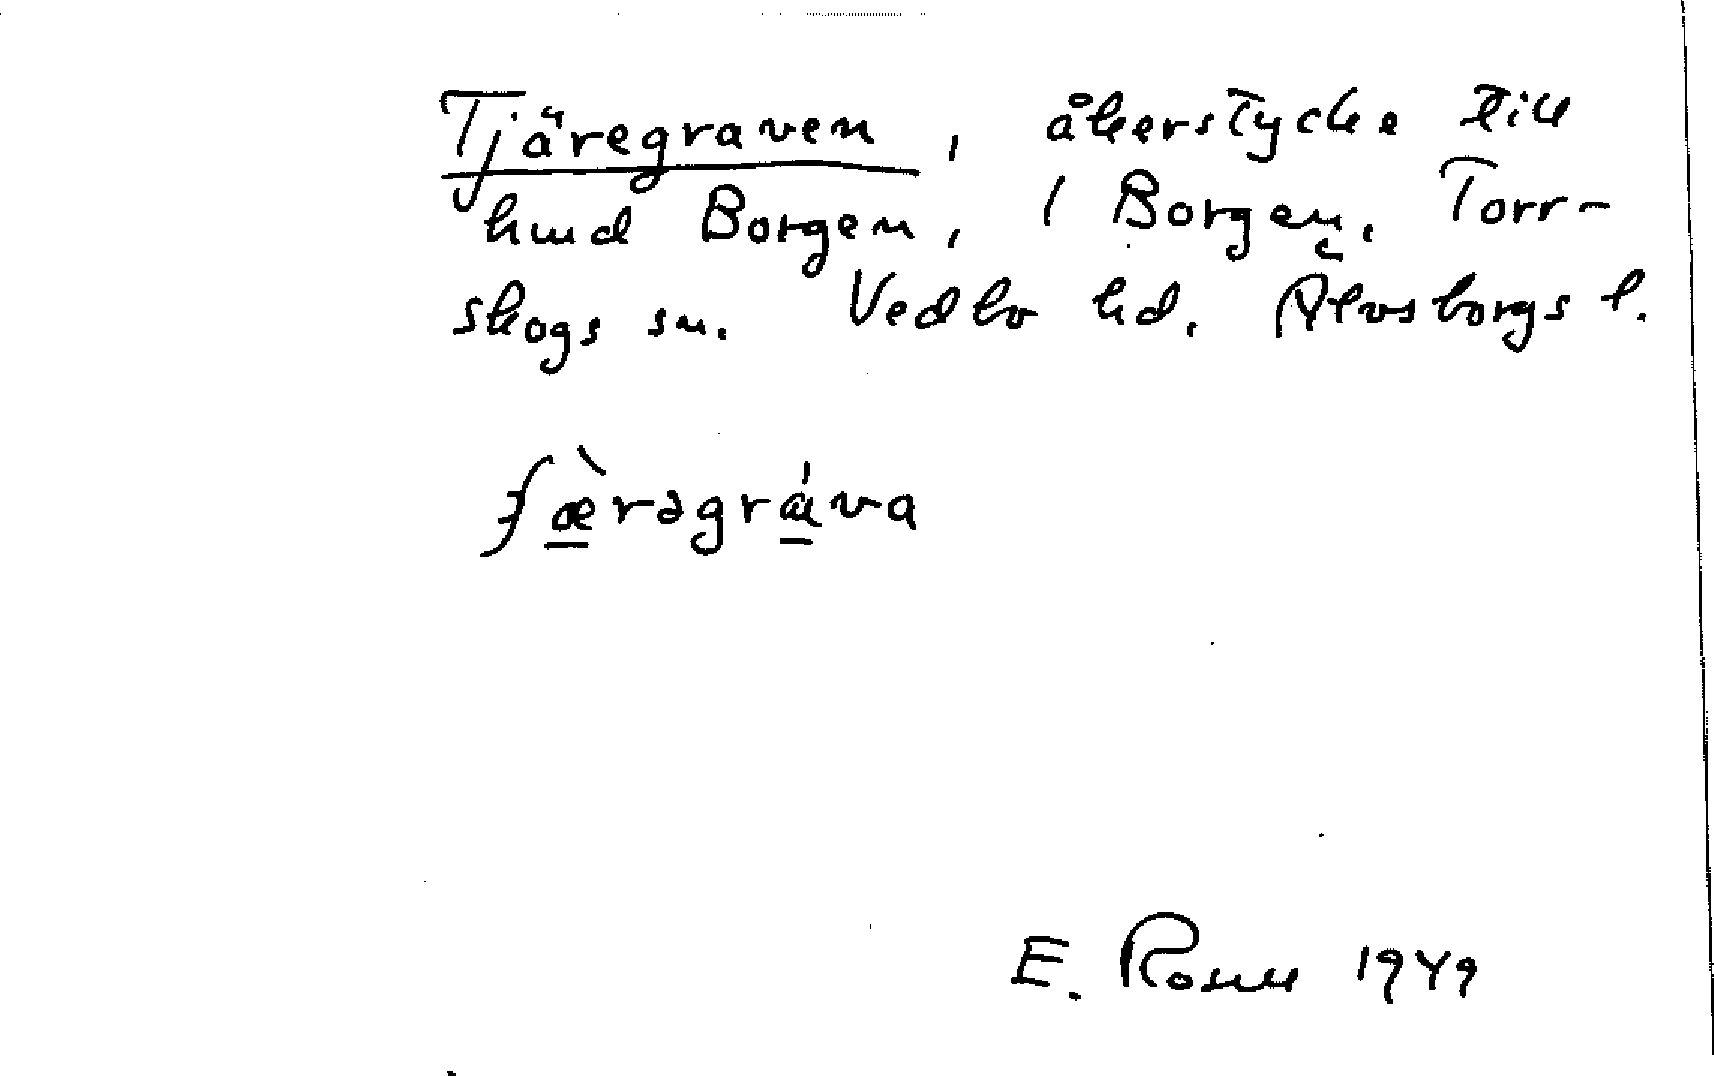 Tjäregraven, åkerstycke till
hmd Borgen, 1 Borgen, Torr-
skogs sn. Vedbo hd. Älvsborgs l.
E. Rosell 1949